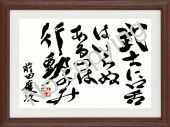 武士に二言
はいらぬ
あるのは
行動のみ
前田慶次